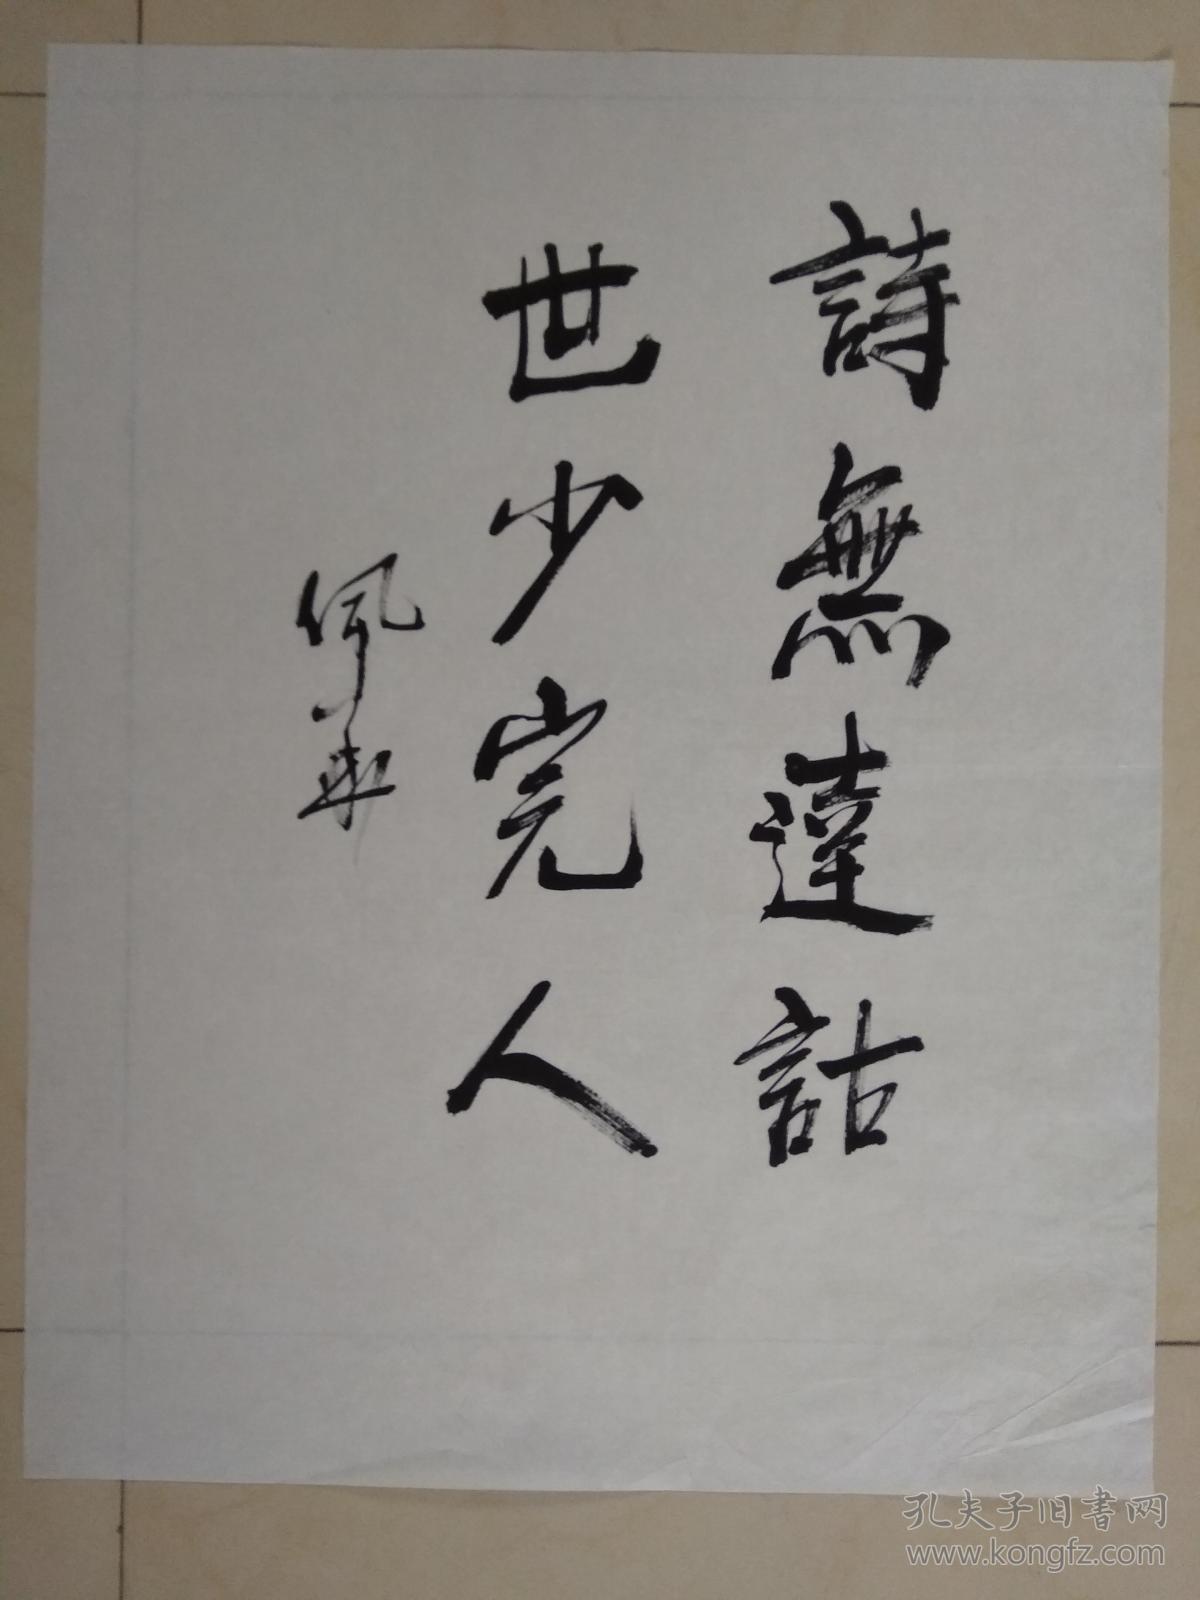 詩無達詁
世少完人
佩
孔夫子旧书网
www.kongfz.com